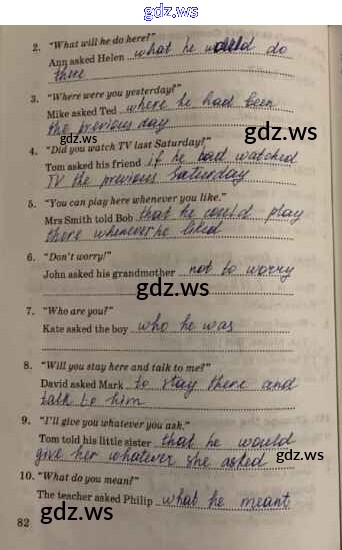 gdz.ws
2. "What will he do here?"
Ann asked Helen what he would do
there
gdz.ws
3. "Where were you yesterday?"
Mike asked Ted where he had been
the previous day
gdz.ws
4. "Did you watch TV last Saturday?"
Tom asked his friend if he had watched
TV the previous Saturday
5. "You can play here whenever you like."
Mrs Smith told Bob that he could play
there whenever he liked
gdz.ws
6. "Don't worry!"
John asked his grandmother not to worry
gdz.ws
7. "Who are you?"
Kate asked the boy who he was
8. "Will you stay here and talk to me?"
David asked Mark to stay there and
talk to him
gdz.ws
9. "I'll give you whatever you ask."
Tom told his little sister that he would
give her whatever she asked
10. "What do you mean?"
gdz.ws
The teacher asked Philip what he meant
82
gdz.ws
gdz.ws